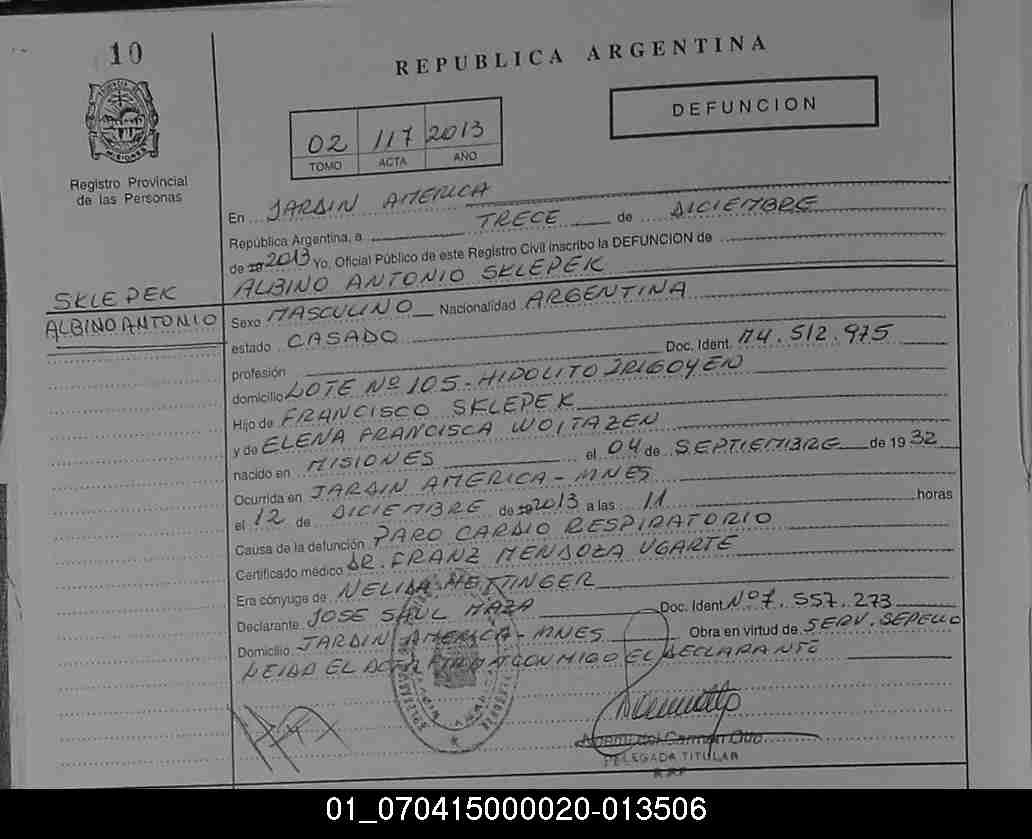 10
REPUBLICA ARGENTINA
DEFUNCION
02 117 2013
TOMO ACTA AÑO
MISIONES
Registro Provincial
de las Personas
En JARDIN AMERICA
República Argentina, a TRECE de DICIEMBRE
de 2013 Yo, Oficial Público de este Registro Civil inscribo la DEFUNCION de
ALBINO ANTONIO SKLEPEK
SKLEPEK
ALBINO ANTONIO
Sexo MASCULINO Nacionalidad ARGENTINA
estado CASADO
profesión Doc. Ident. M4.512.975
domicilio LOTE Nº 105-HIPOLITO IRIGOYEN
Hijo de FRANCISCO SKLEPEK
y de ELENA FRANCISCA WOITAZEN
nacido en MISIONES el 04 de SEPTIEMBRE de 1932
Ocurrida en JARDIN AMERICA-MNES
el 12 de DICIEMBRE de 2013 a las 11 horas
Causa de la defunción PARO CARDIO RESPIRATORIO
Certificado médico DR. FRANZ MENDOZA UGARTE
Era cónyuge de NELIDA HETTINGER
Declarante JOSE SAUL MAZA Doc. Ident Nº 7.557.273
Domicilio JARDIN AMERICA-MNES Obra en virtud de SERV. SEPELIO
LEIDA EL ACTA FIRMA CONMIGO EL DECLARANTE
Noemi del Carmen Otto
DELEGADA TITULAR
R.P.P.
01_070415000020-013506